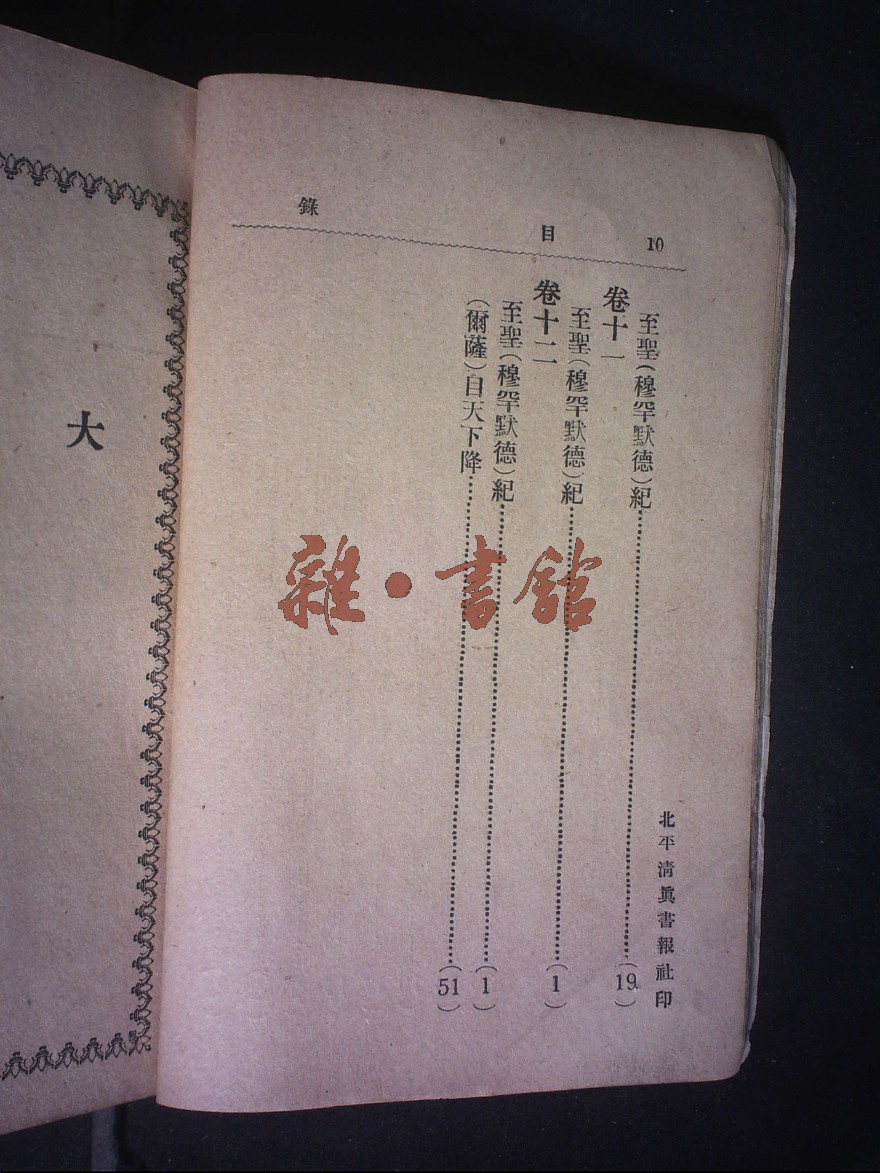 10 目 錄
至聖(穆罕默德)紀……(19)
卷十一
至聖(穆罕默德)紀……(1)
卷十二
至聖(穆罕默德)紀……(1)
(爾薩)自天下降……(51)
北平清眞書報社印
大
雜·書館